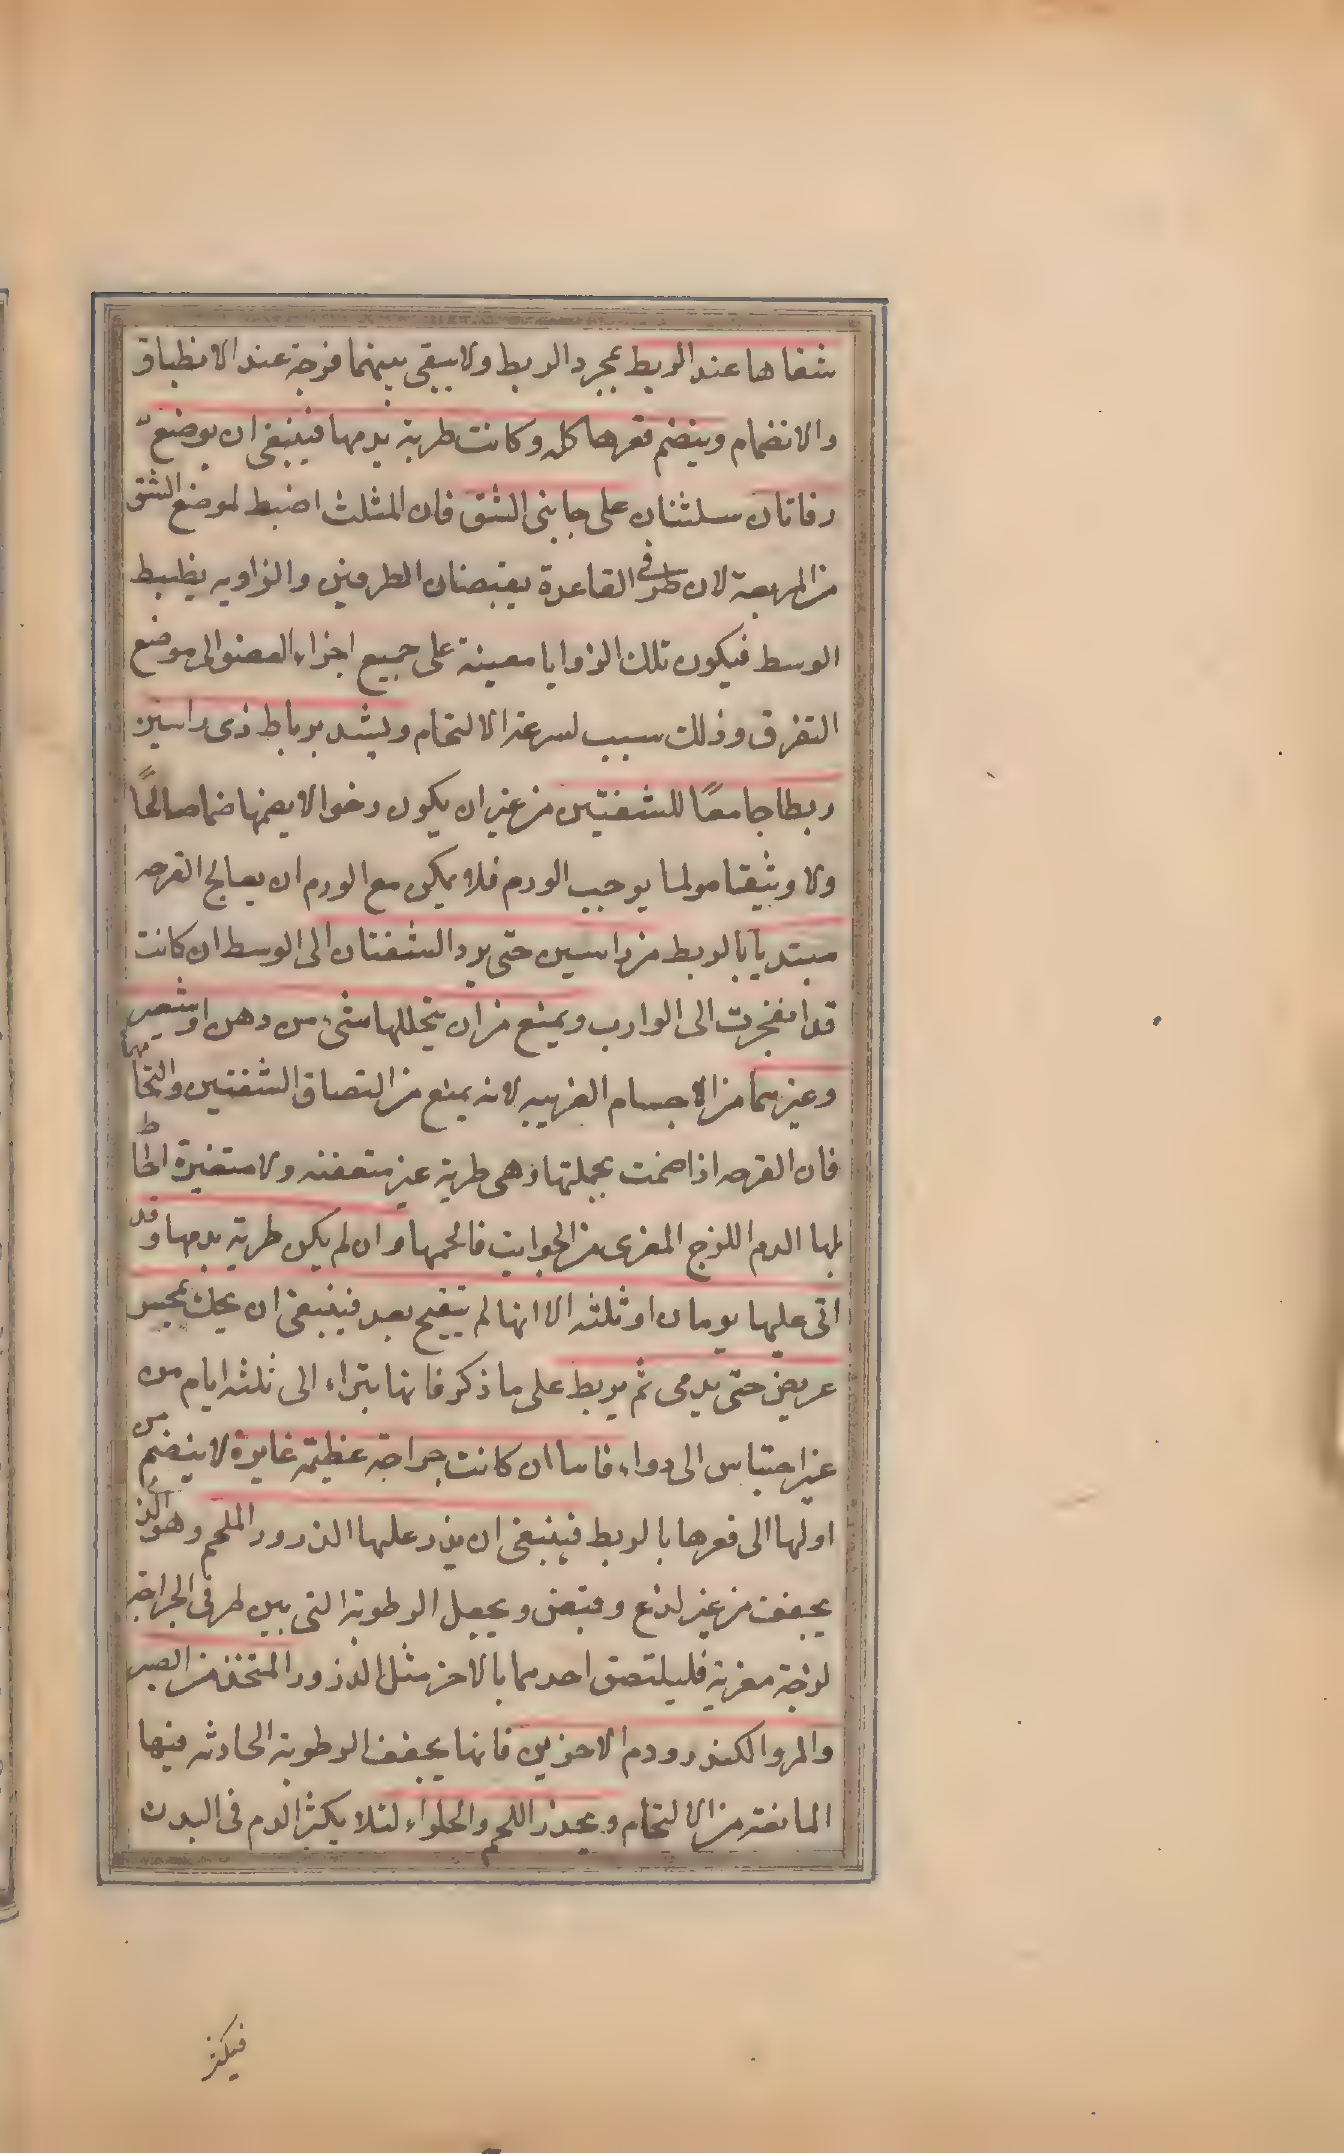 شفاها عند الربط بمجرد الربط ولا يبقى بينهما فرجة عند الانطباق
والانضمام وينضم قعرها كله وكانت طرية بدمها فينبغى ان يوضع
رفادتان مثلثتان على جانبى الشق فان المثلث اضبط لموضع الشق
من المربعة لان طرفى القاعدة يقبضان الطرفين والزاويه يضبط
الوسط فيكون تلك الزوايا معينة على جميع اجزاء العضو الى موضع
التفرق وذلك سبب لسرعة الالتحام ويشد برباط ذى راسين
ربطا جامعًا للشفتين من غير ان يكون رخوا لا يضمها ضما صالحًا
ولا وثيقا مولما يوجب الورم فلا يمكن مع الورم ان يعالج القرحه
مبتديا بالربط من راسين حتى يرد الشفتان الى الوسط ان كانت
قد انفجرت الى الوارب ويمنع من ان يتخللها شىء من دهن او شعير
وغيرهما من الاجسام الغريبه لانه يمنع من التصاق الشفتين والتحامهما
فان القرحه اذا ضمت بجملتها وهى طرية غير متعفنه ولا متغيرة احاط
بها الدم اللزج المغرى من الجوانب فالحمها وان لم يكن طرية بدمها وقد
اتى عليها يومان او ثلثه الا انها لم يتقيح بعد فينبغى ان يحك بمجسر
عريض حتى يدمى ثم يربط على ما ذكر فانها يتبراء الى ثلثه ايام من
غير احتباس الى دواء فاما ان كانت جراحة عظيمة غايرة لا ينضم من
اولها الى قعرها بالربط فينبغى ان يذر عليها الذرور الملحم وهو الذى
يجفف من غير لذع وقبض ويجعل الرطوبة التى بين طرفى الجراحة
لزجة مغرية فليلتصق احدهما بالاخر مثل الذرور المتخذ من الصبر
والمر والكندر ودم الاخوين فانها يجفف الرطوبة الحادثه فيها
المانعة من الالتحام ويحذر اللحم والحلواء لئلا يكثر الدم فى البدن
فيكثر